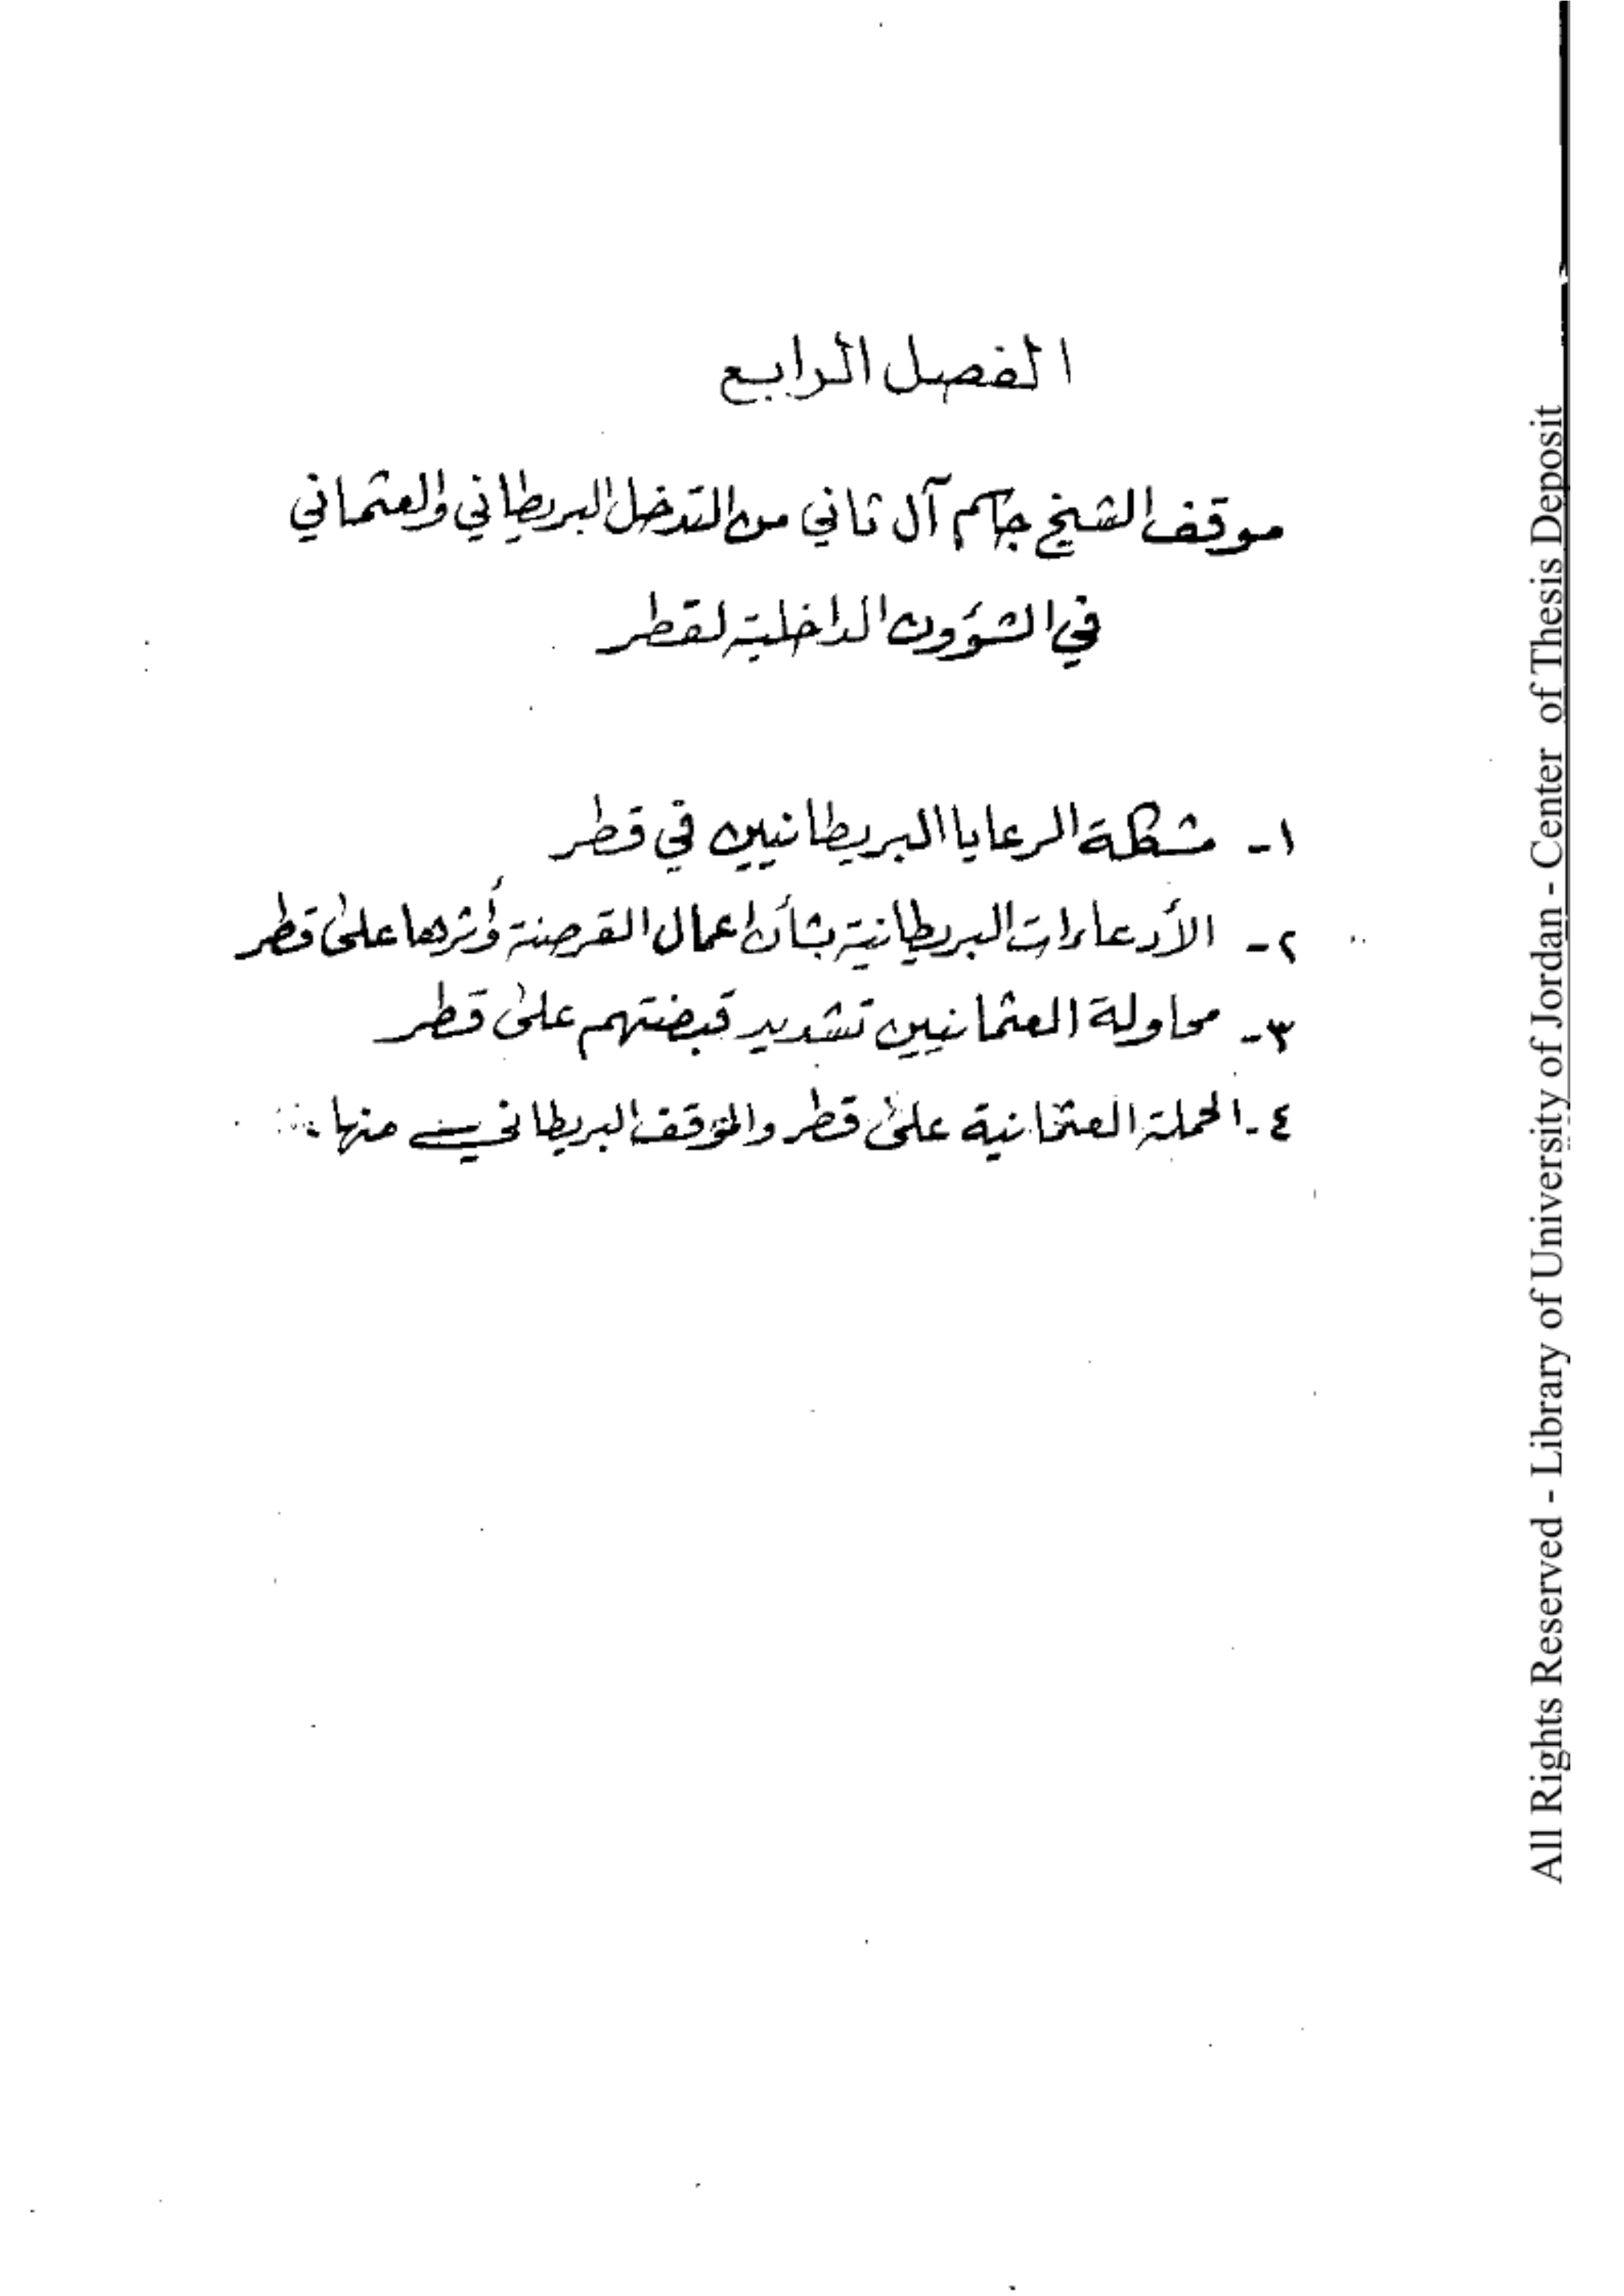 الفصل الرابع
موقف الشيخ جاسم آل ثاني من التدخل البريطاني والعثماني
في الشؤون الداخلية لقطر
١- مشكلة الرعايا البريطانيين في قطر
٢- الأدعاءات البريطانية بشأن اعمال القرصنة وأثرها على قطر
٣- محاولة العثمانيين تشديد قبضتهم على قطر
٤- الحملة العثمانية على قطر والموقف البريطاني منها.
All Rights Reserved - Library of University of Jordan - Center of Thesis Deposit